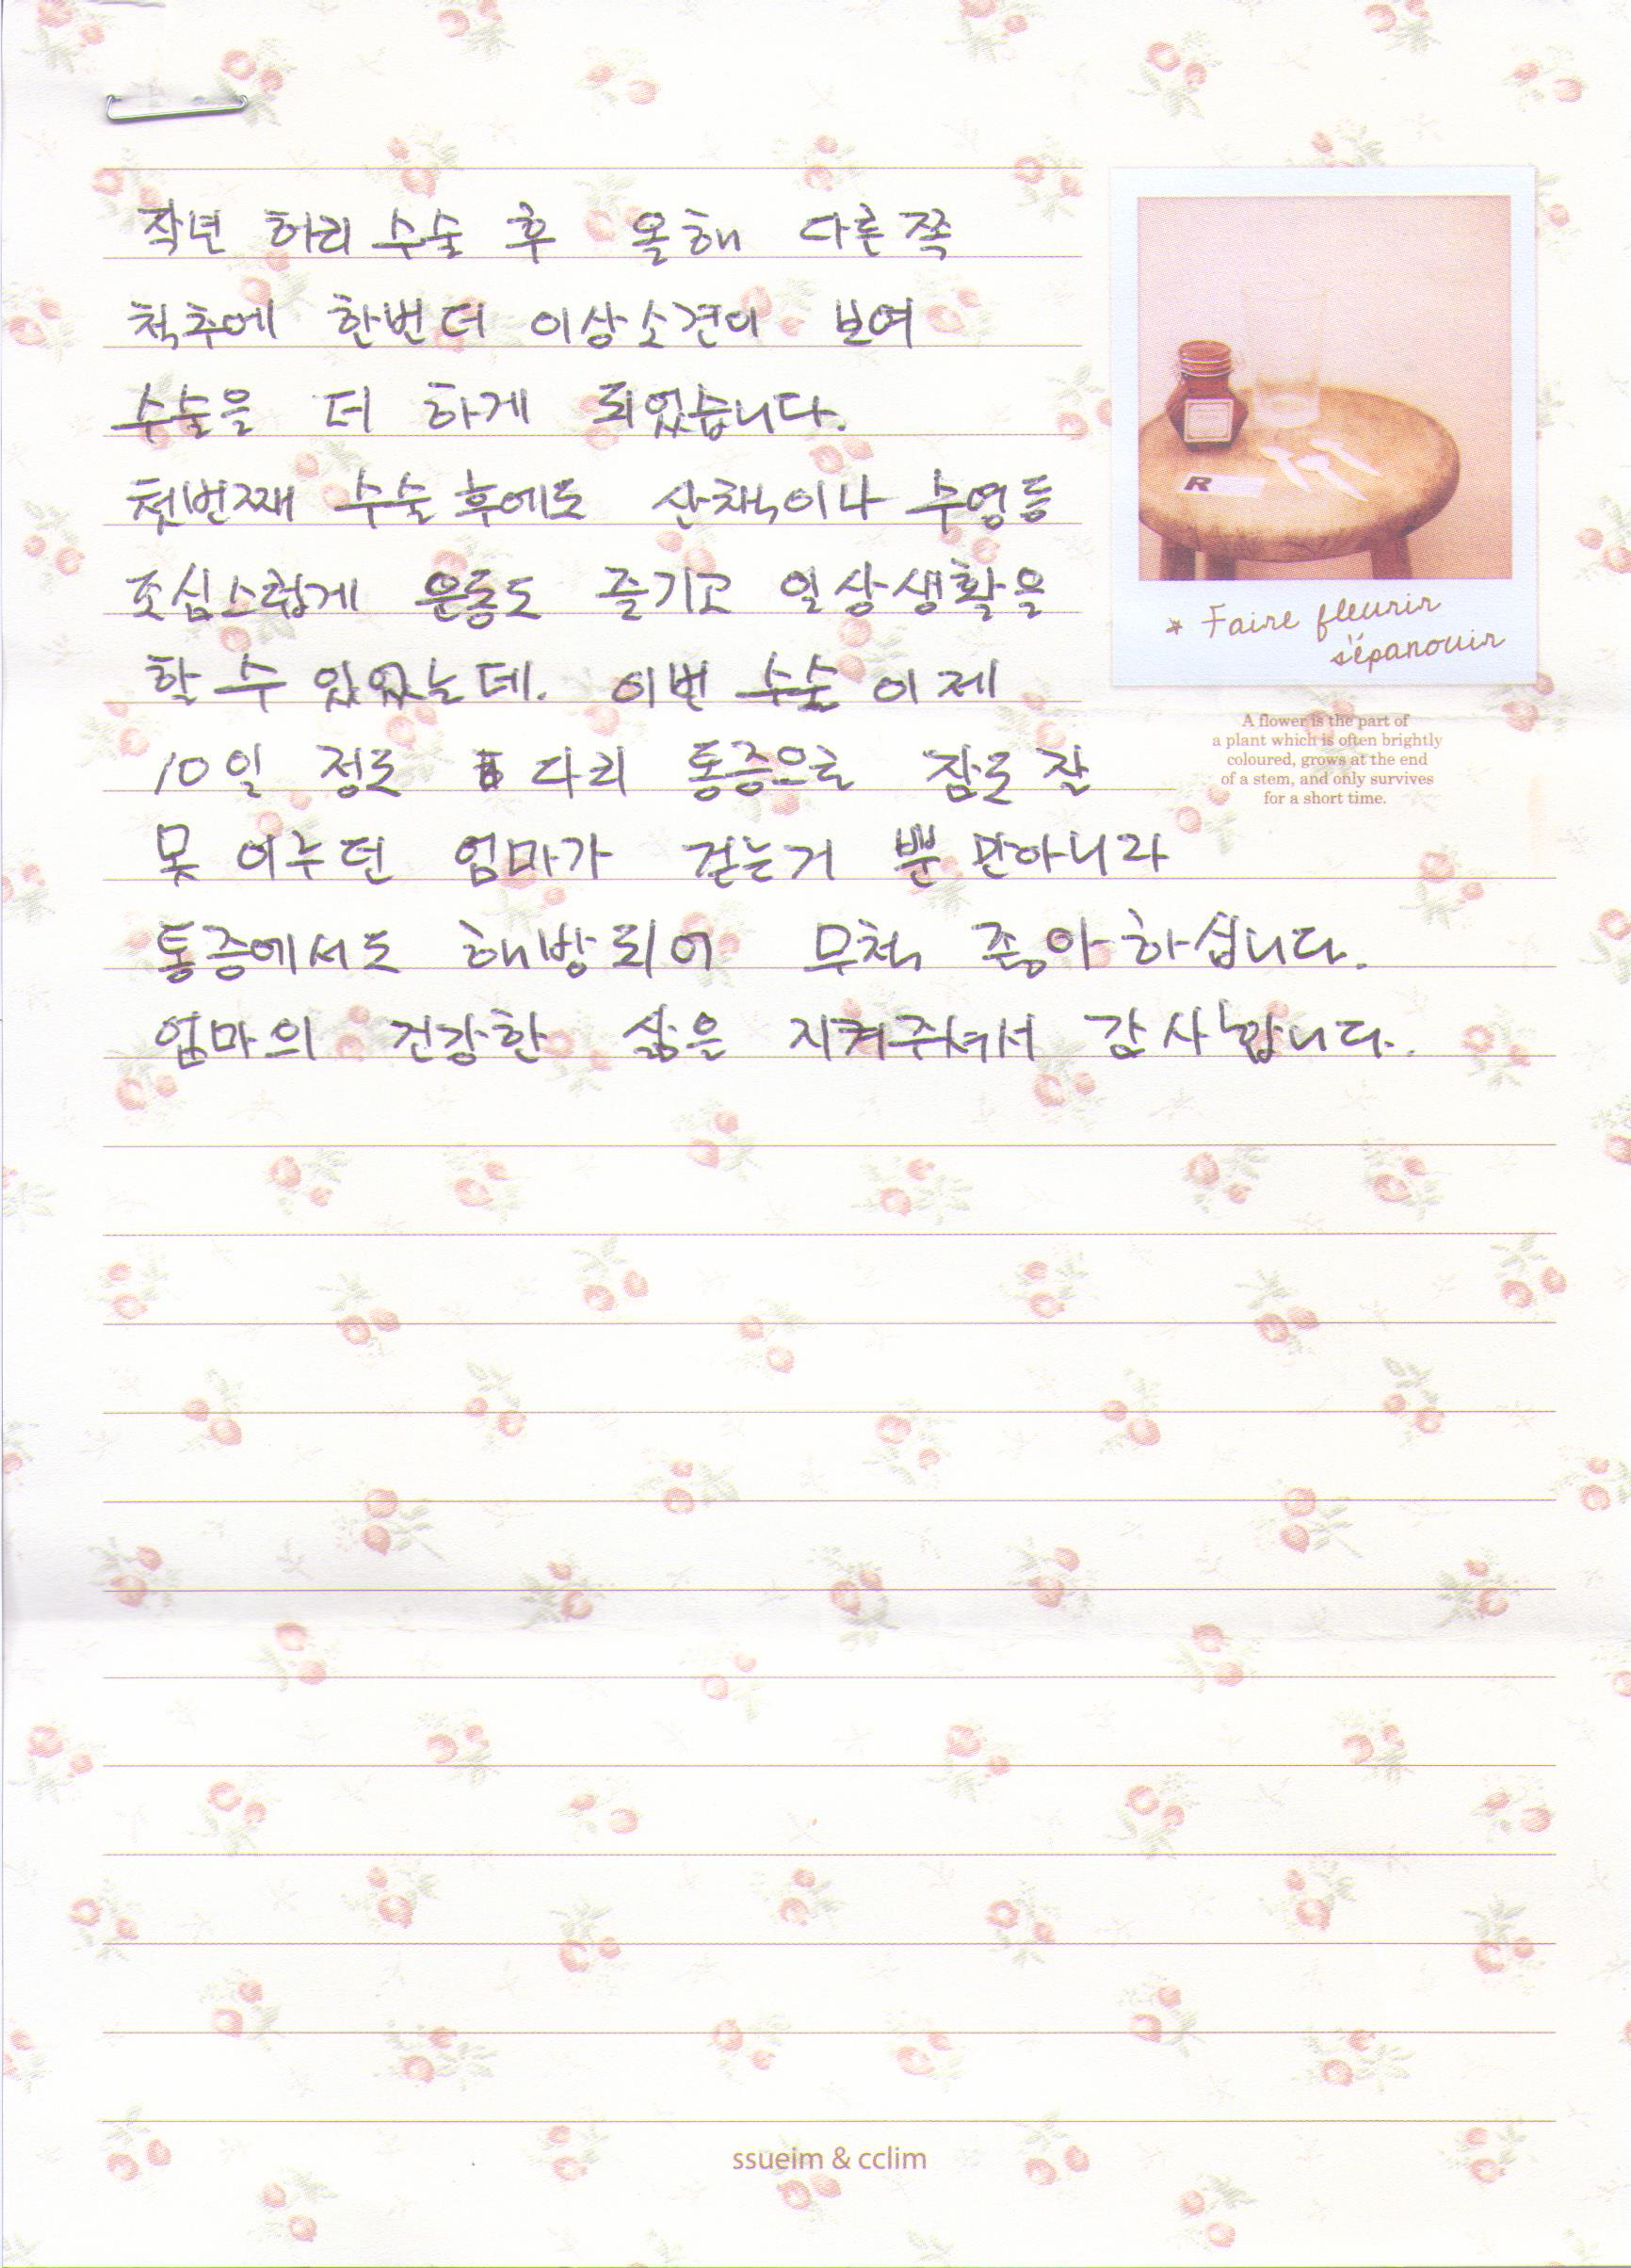 작년 허리 수술 후 올해 다른쪽
척추에 한번 더 이상소견이 보여
수술을 더 하게 되었습니다.
첫번째 수술 후에도 산책이나 수영등
조심스럽게 운동도 즐기고 일상생활을
할 수 있었는데. 이번 수술 이제
10일 정도 다리 통증으로 잠도 잘
못 이루던 엄마가 걷는거 뿐만아니라
통증에서도 해방되어 무척 좋아하십니다.
엄마의 건강한 삶은 지켜주셔서 감사합니다..
R
* Faire fleurir
s'épanouir
A flower is the part of
a plant which is often brightly
coloured, grows at the end
of a stem, and only survives
for a short time.
ssueim & cclim